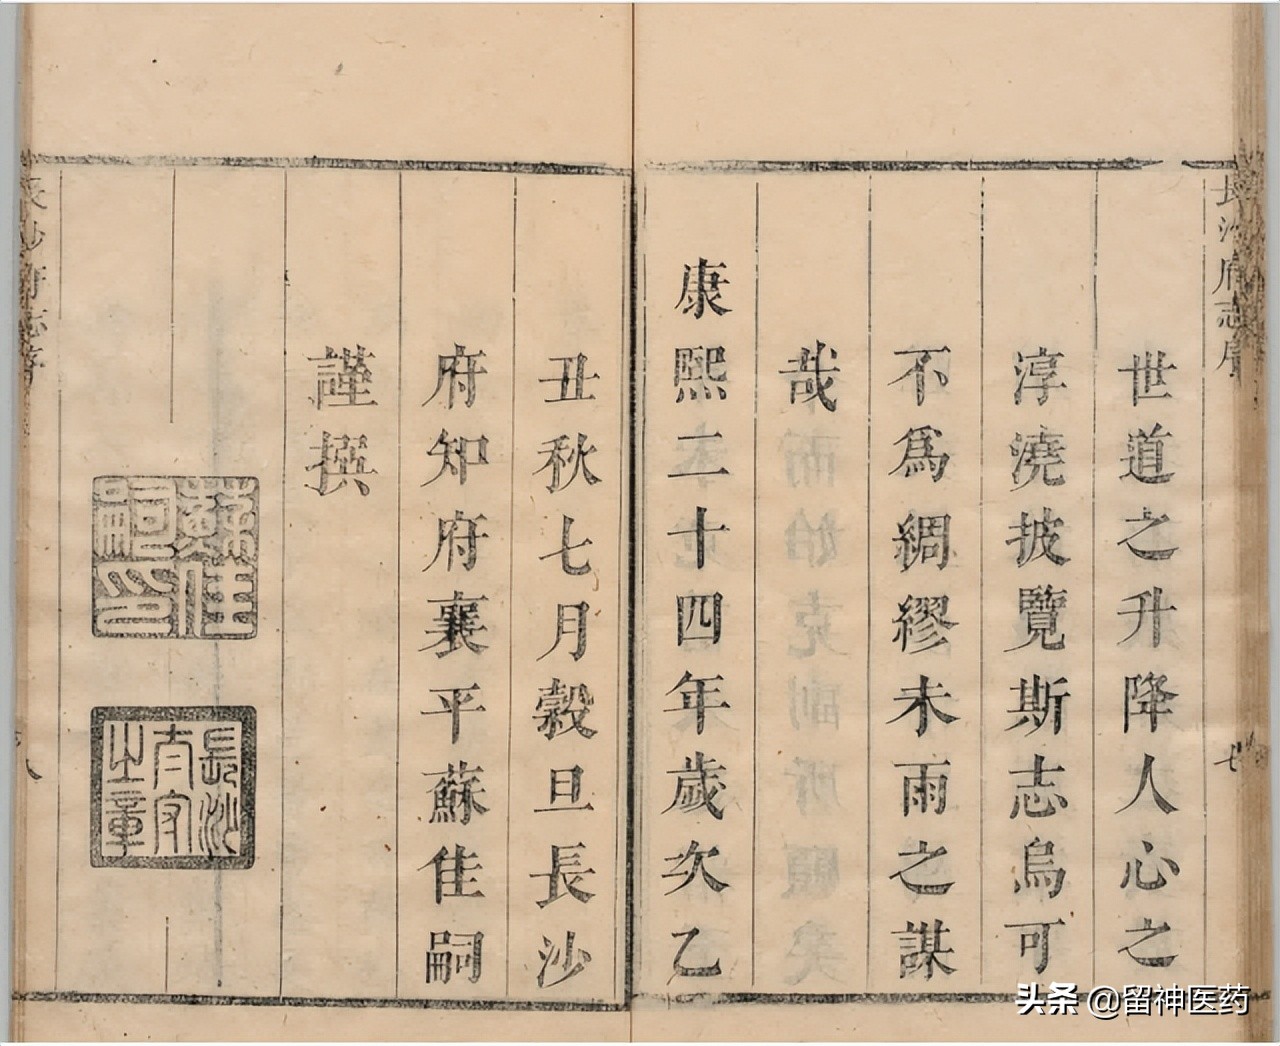 長沙府志序
世道之升降人心之
淳澆披覽斯志烏可
不為綢繆未雨之謀
哉
康熙二十四年歲次乙
七
丑秋七月穀旦長沙
府知府襄平蘇佳嗣
謹撰
蘇佳嗣印
長沙太守之章
長沙府志序
八
头条 @留神医药